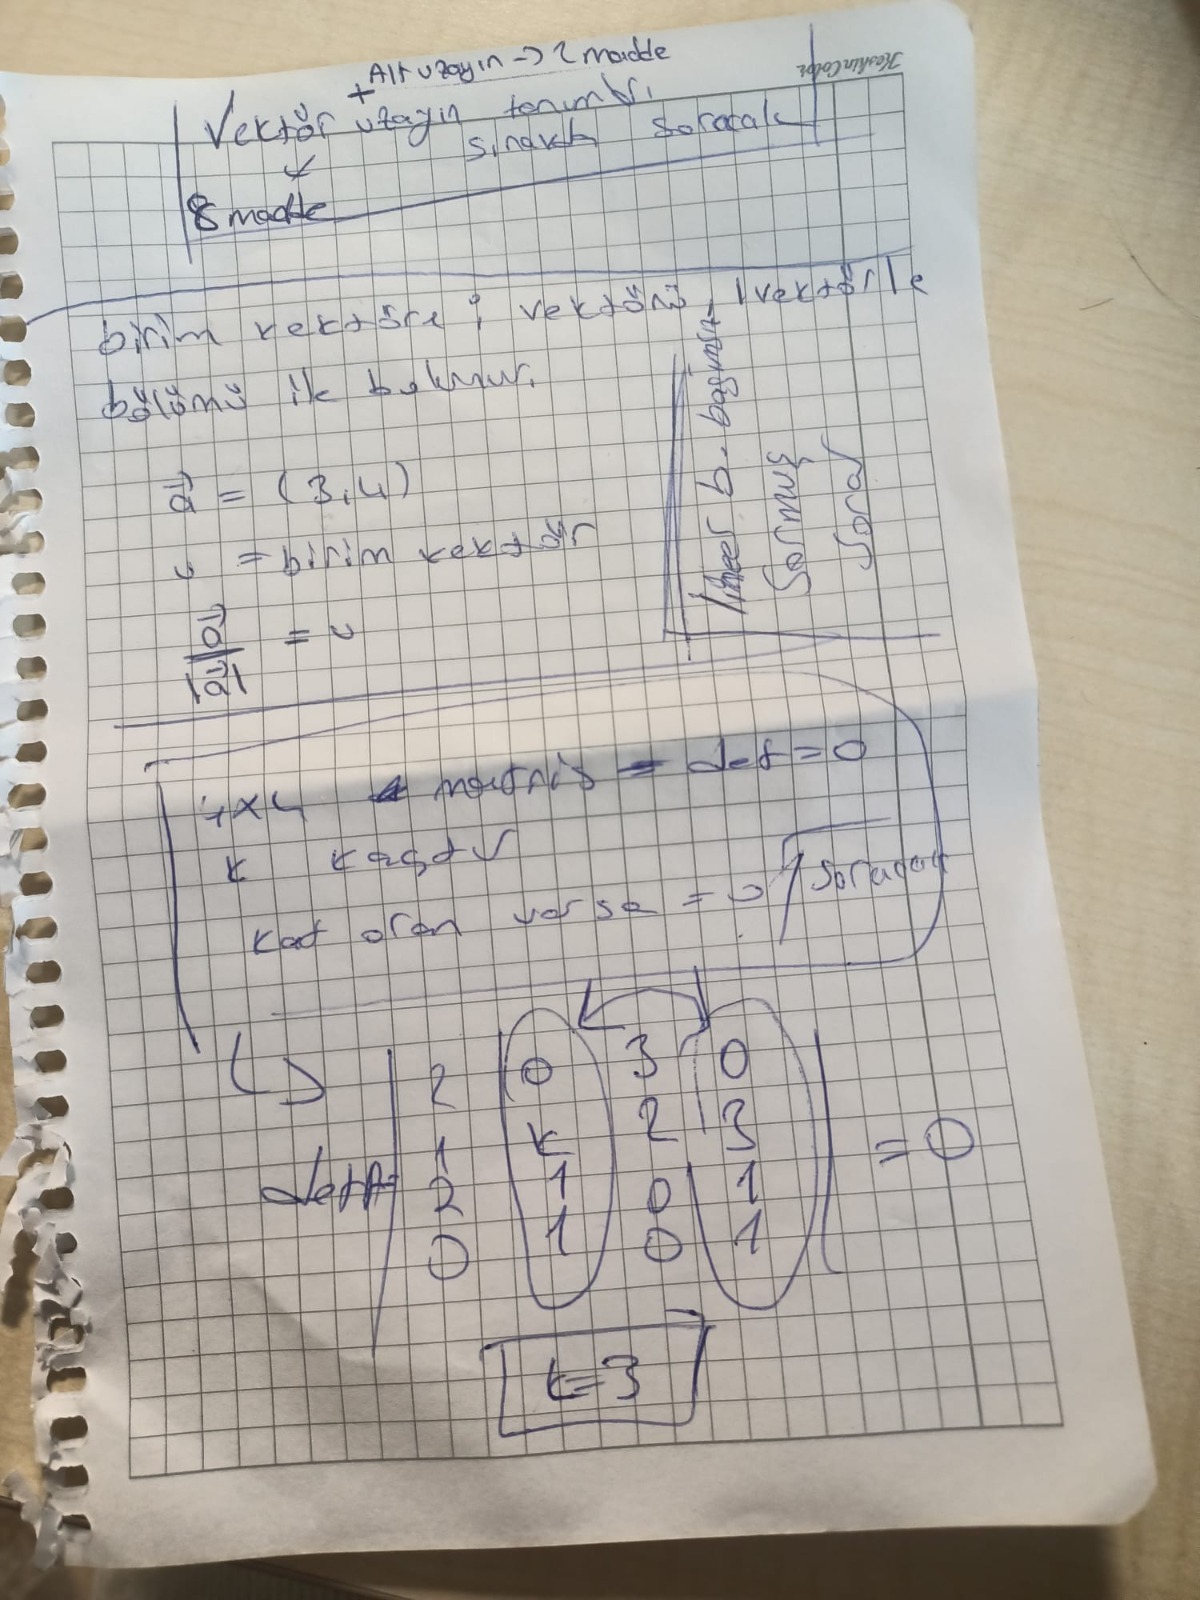 Altuzayın → 2 madde
+
Vektör uzayın tanımları
sınavda soracak
8 madde
KeskinColor
birim vektöre ; vektörü, |vektör| le
bölümü ile bulunur.
a = (3,4)
u = birim vektör
a / |a| = u
lineer b. bağımsız
Sormuş
Sorar
4x4 matris = det = 0
k kaçtır
kat oran varsa = 0 Soracak
2 0 3 0
1 k 2 3
detA= 2 1 0 1 = 0
0 1 0 1
k=3